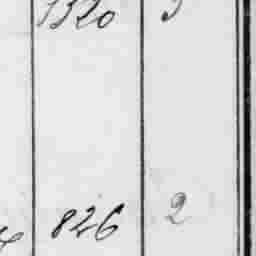 1320
826 2